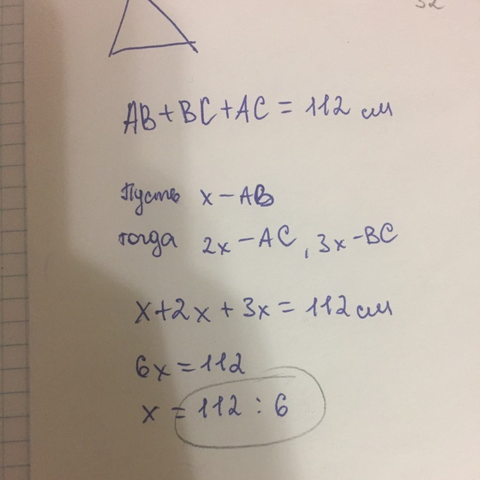 AB+BC+AC = 112 см
Пусть x – AB
тогда 2x – AC, 3x – BC
x+2x+3x = 112 см
6x = 112
x = 112 : 6